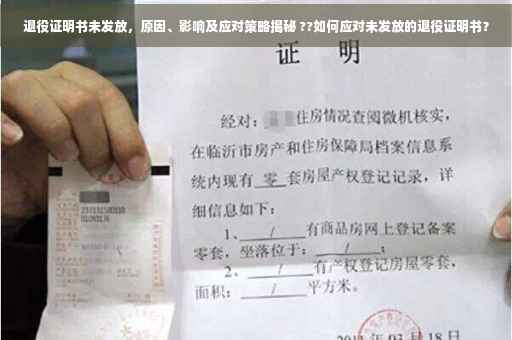 退役证明书未发放，原因、影响及应对策略揭秘 ??如何应对未发放的退役证明书？
证 明
经对：住房情况查阅微机核实，
在临沂市房产和住房保障局档案信息系
统内现有 零 套房屋产权登记记录，详
细信息如下：
1、 / 有商品房网上登记备案
零套，坐落位于： / ；
2、 / 有产权登记房屋零套，
面积： / 平方米。
03 月 18 日